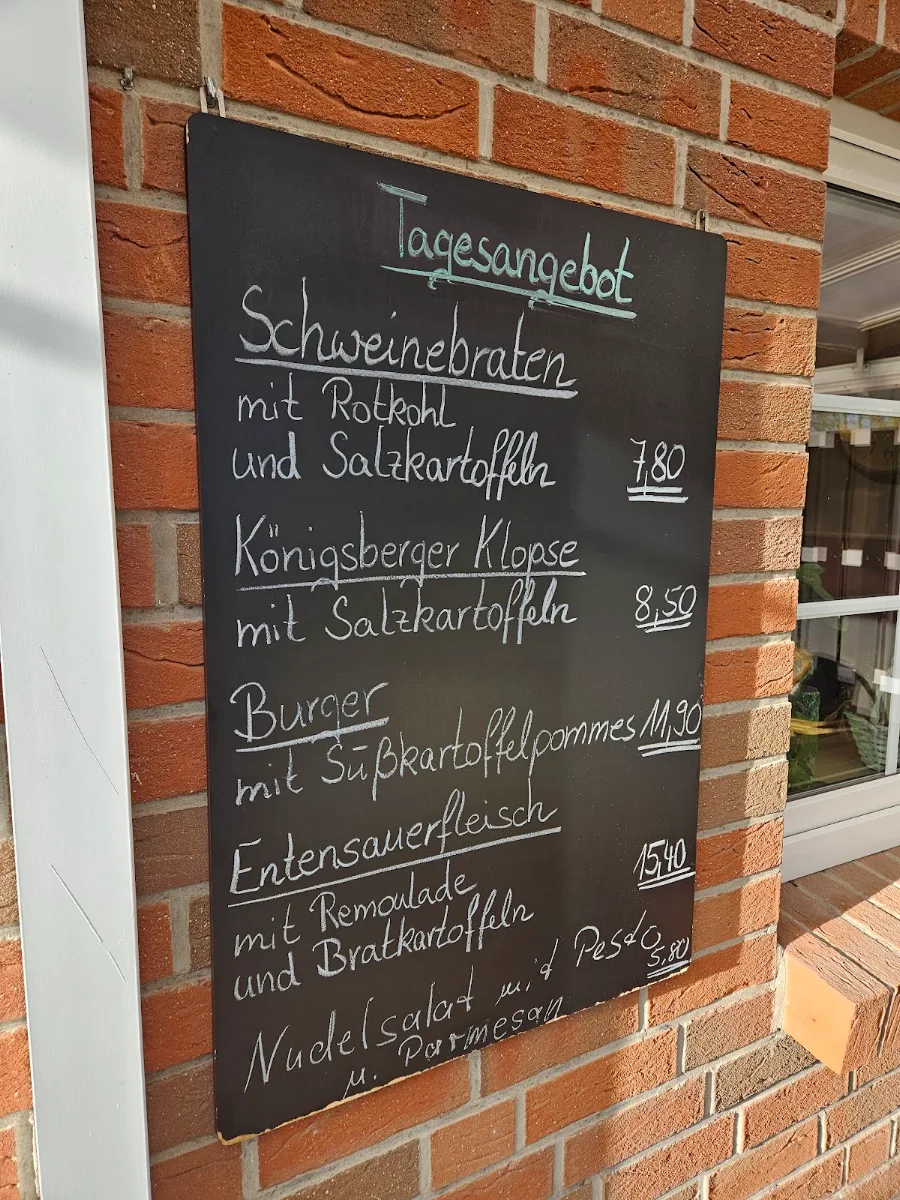 Tagesangebot
Schweinebraten
mit Rotkohl
und Salzkartoffeln 7,80
Königsberger Klopse
mit Salzkartoffeln 8,50
Burger
mit Süßkartoffelpommes 11,90
Entensauerfleisch
mit Remoulade 15,40
und Bratkartoffeln
Nudelsalat mit Pesto 5,80
u. Parmesan